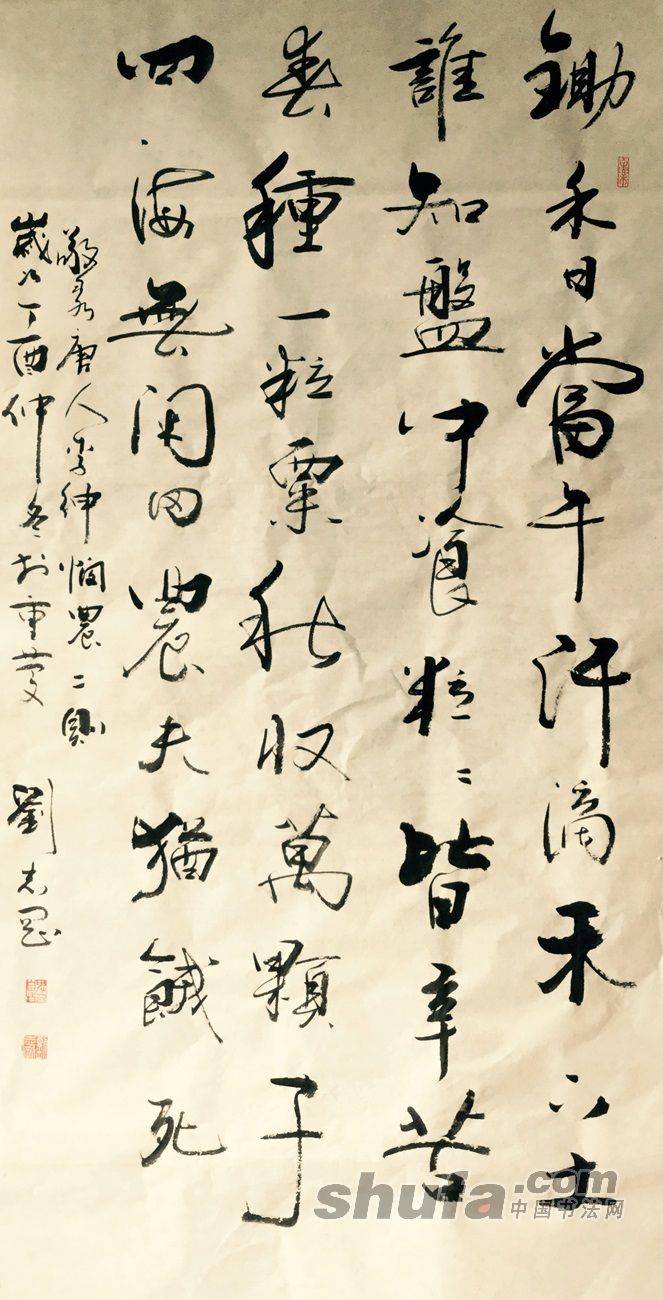 鋤禾日當午汗滴禾下土
誰知盤中飡粒二皆辛苦
春種一粒粟秋收萬顆子
四海無闲田農夫猶餓死
敬录唐人李紳憫農二則
歲次丁酉仲冬於重慶
劉志罡
shufa.com
中国书法网